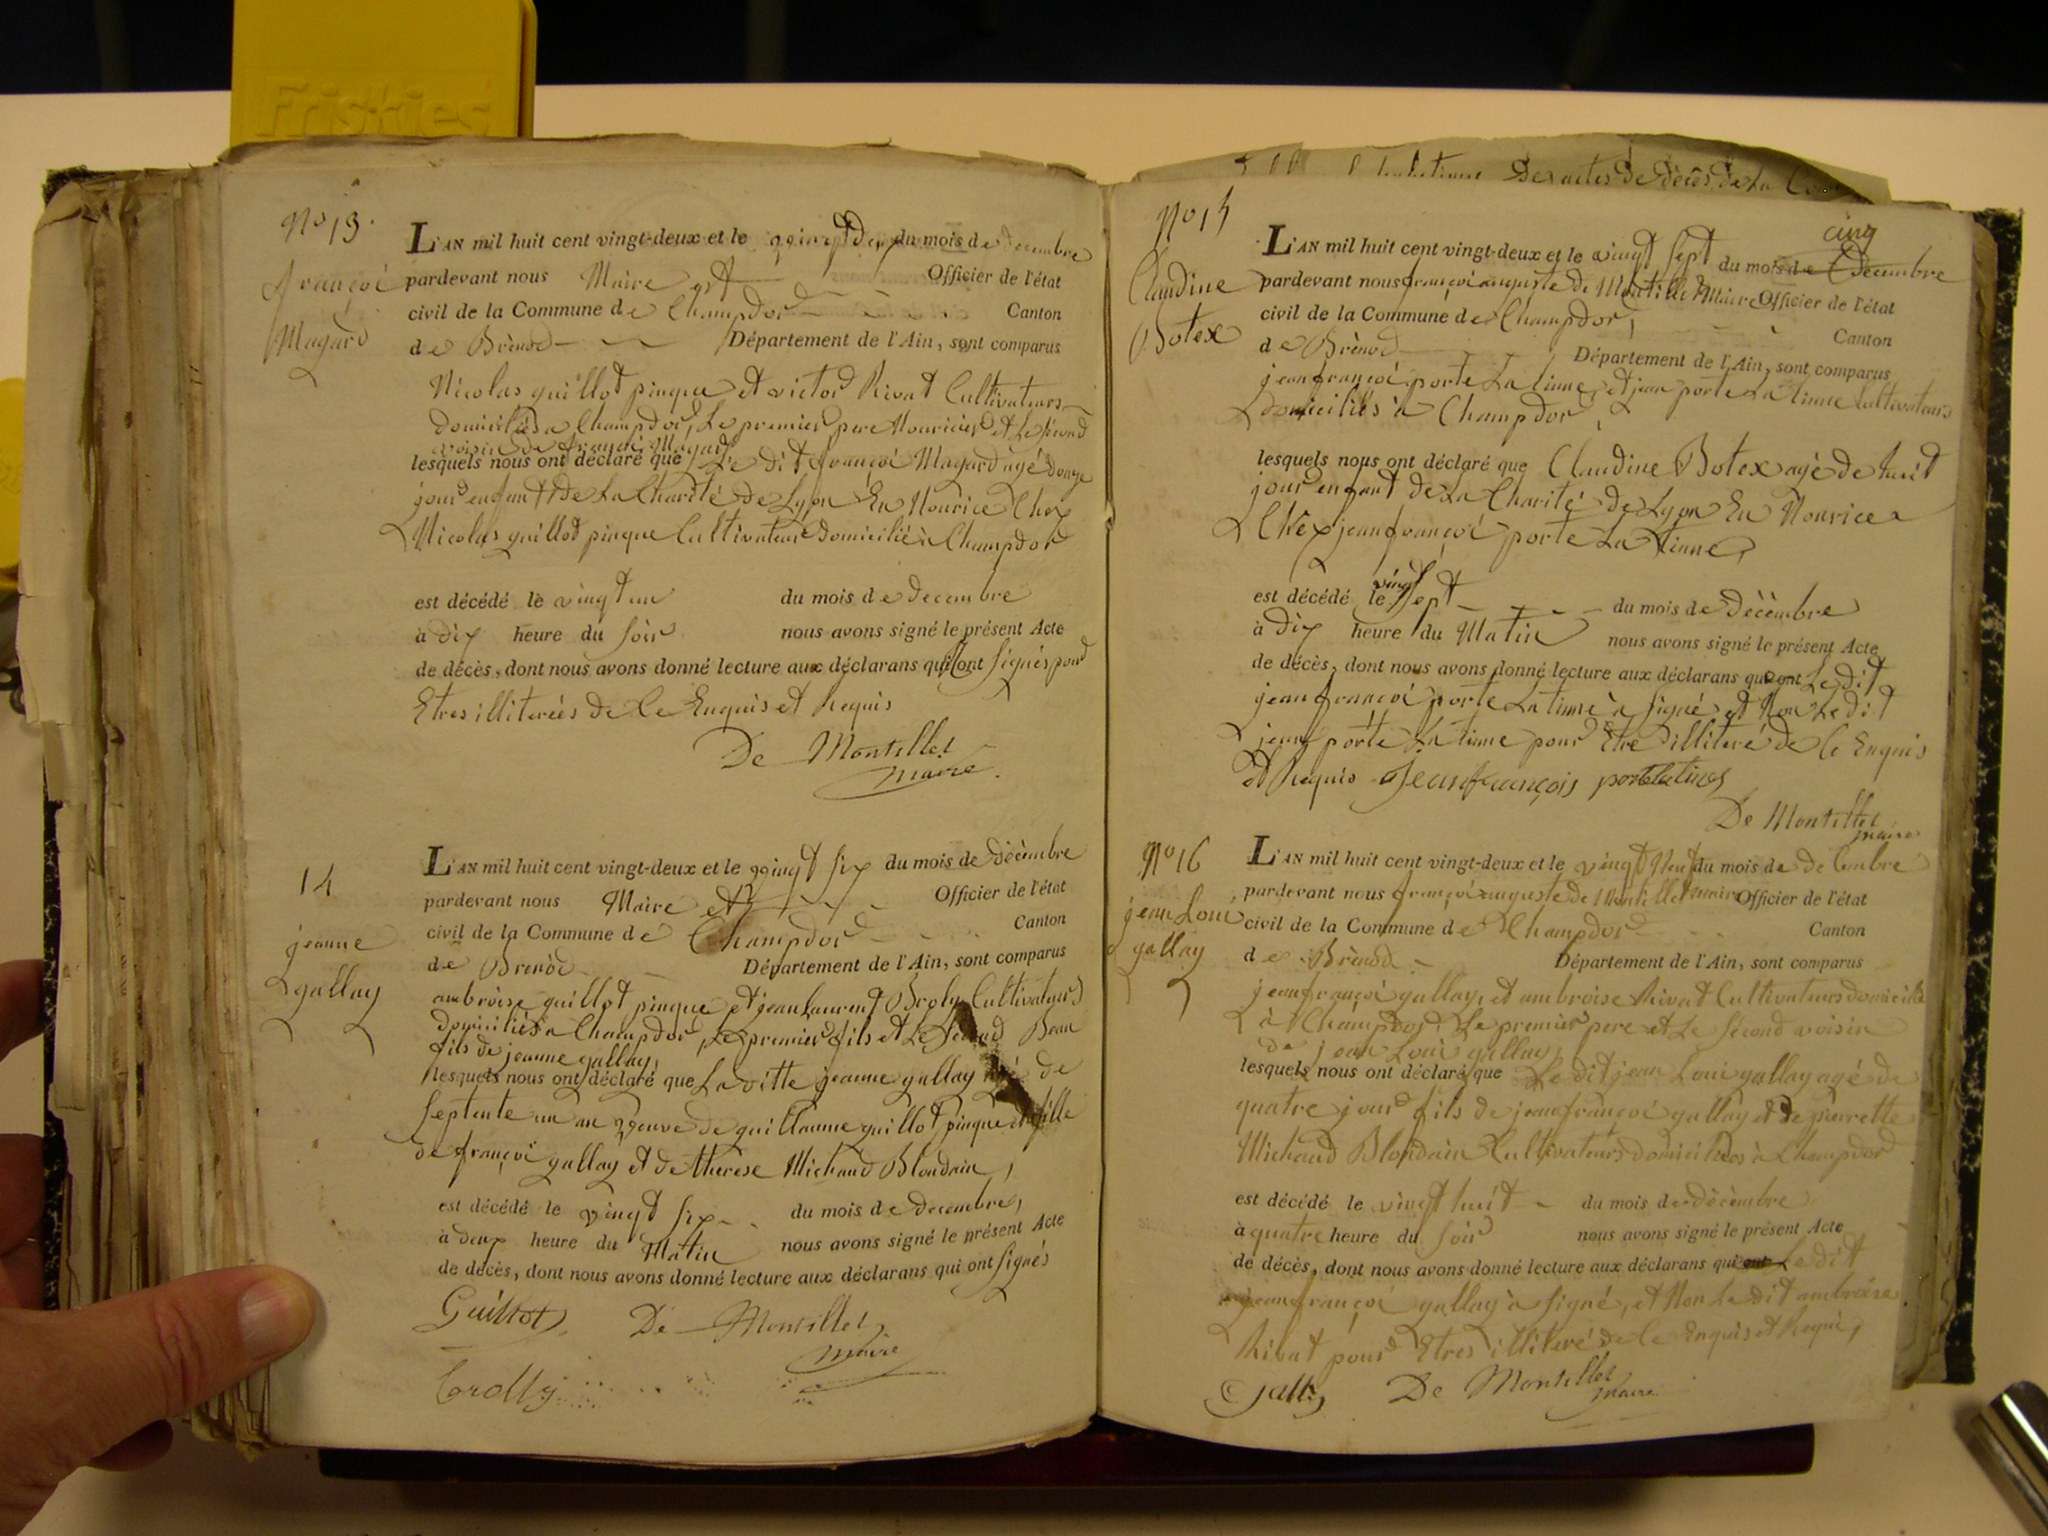 Friskies
No 13.
françoi
Magard
L'AN mil huit cent vingt-deux et le vingt deux du mois de decembre
pardevant nous Maire et Officier de l'état
civil de la Commune de Champdor Canton
de Brénod Département de l'Ain, sont comparus
Nicolas guillot pinque et victor Rivat Cultivateurs
domiciliés a Champdor, Le premier pere Nouricier et Le sécond
voisin de françoi Magard
lesquels nous ont déclaré que Le dit françoi Magard agé douze
jours enfant de La Charité de Lyon En Nourice Chez
Nicolas guillot pinque Cultivateur domicilié à Champdor
est décédé le vingt un du mois de decembre
à dix heure du soir nous avons signé le présent Acte
de décès, dont nous avons donné lecture aux déclarans qui ont signés pour
Etres illiterées de Ce Enquis et Requis
De Montillet
maire
14
jeanne
gallay
L'AN mil huit cent vingt-deux et le vingt six du mois de décembre
pardevant nous Maire et Officier de l'état
civil de la Commune de Champdor Canton
de Brenod Département de l'Ain, sont comparus
ambroise guillot pinque et jean Laurent Brolly Cultivateurs
domiciliés a Champdor, Le premier fils et Le Sécond Beau
fils de jeanne gallay,
lesquels nous ont déclaré que La ditte jeanne gallay agé de
septente un an veuve de guillaume guillot pinque et fille
de françoi gallay et de therese Michaud Blondain,
est décédé le vingt six du mois de decembre,
à deux heure du Matin nous avons signé le présent Acte
de décès, dont nous avons donné lecture aux déclarans qui ont signés
Guillot De Montillet
maire
Brolly
des actes de décès de La
No 15
Claudine
Botex
cinq
L'AN mil huit cent vingt-deux et le vingt sept du mois de Décembre
pardevant nous françoi auguste de Montillet Maire Officier de l'état
civil de la Commune de Champdor, Canton
de Brénod Département de l'Ain, sont comparus
jean françoi porte La tinne, et jean porte La tinne Cultivateurs
domiciliés à Champdor,
lesquels nous ont déclaré que Claudine Botex agé de huit
jours enfant de La Charité de Lyon En Nourice
Chéx jean françoi porte La tinne,
est décédé le vingt sept du mois de Décèmbre
à dix heure du Matin nous avons signé le présent Acte
de décès, dont nous avons donné lecture aux déclarans qui ont Le dit
jean françoi porte La tinne à signé et Non Le dit
jean porte La tinne pour Etre illiteré de Ce Enquis
et Requis Jeanfrançois portelatines
De Montillet
maire
No 16
jean Loui
gallay
L'AN mil huit cent vingt-deux et le vingt Neuf du mois de decembre
pardevant nous françoi auguste de Montillet maire Officier de l'état
civil de la Commune de Champdor Canton
de Brénod Département de l'Ain, sont comparus
jean françoi gallay, et ambroise Rivat Cultivateurs domiciliés
à Champdor, Le premier pere et Le sécond voisin
de jean Loui gallay,
lesquels nous ont déclaré que Le dit jean Loui gallay agé de
quatre jours fils de jean françoi gallay et de pierrette
Michaud Blondain Cultivateurs domiciliés à Champdor
est décédé le vingt huit du mois de décèmbre
à quatre heure du soir nous avons signé le présent Acte
de décès, dont nous avons donné lecture aux déclarans qui ont Le dit
jean françoi gallay à signé, et Non Le dit ambroise
Rivat pour Etres illiteré de Ce Enquis et Requi,
De Montillet
maire